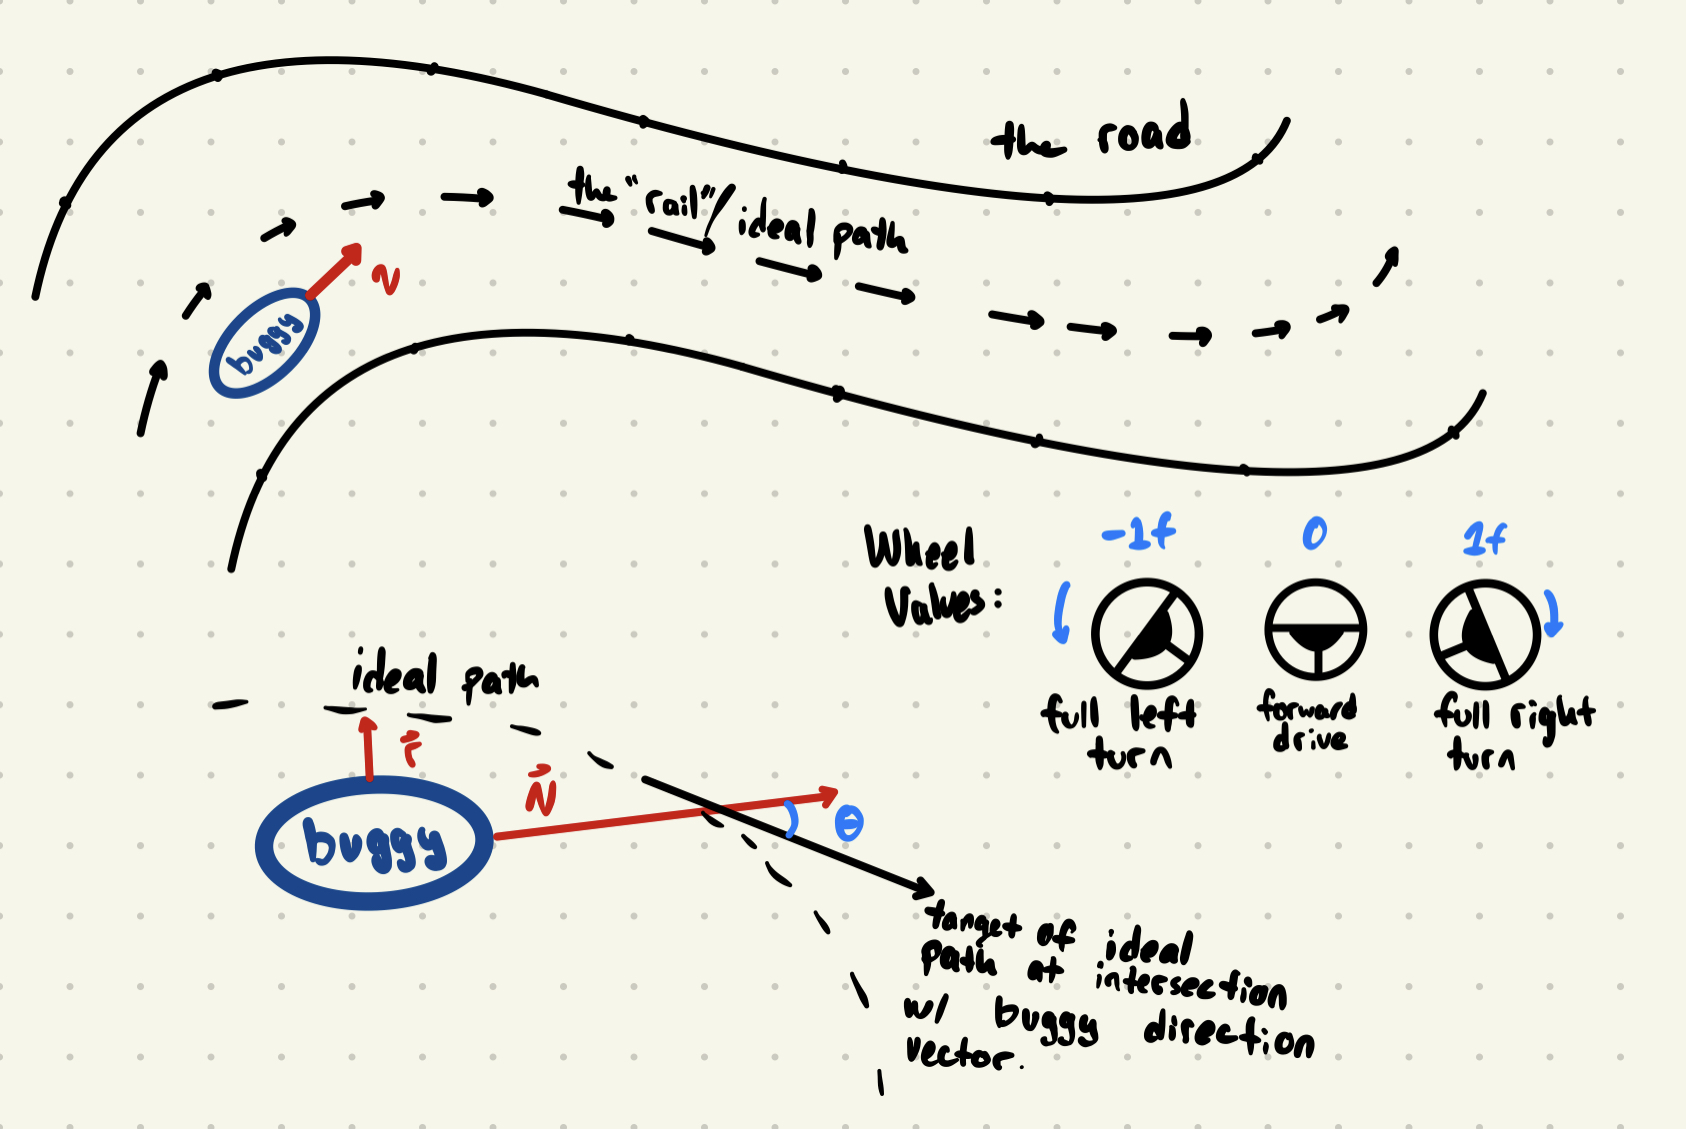 the road
the "rail"/ideal path
buggy
v
Wheel
Values:
-1f
0
1f
full left
turn
forward
drive
full right
turn
ideal path
r
v
buggy
θ
target of ideal
path at intersection
w/ buggy direction
vector.